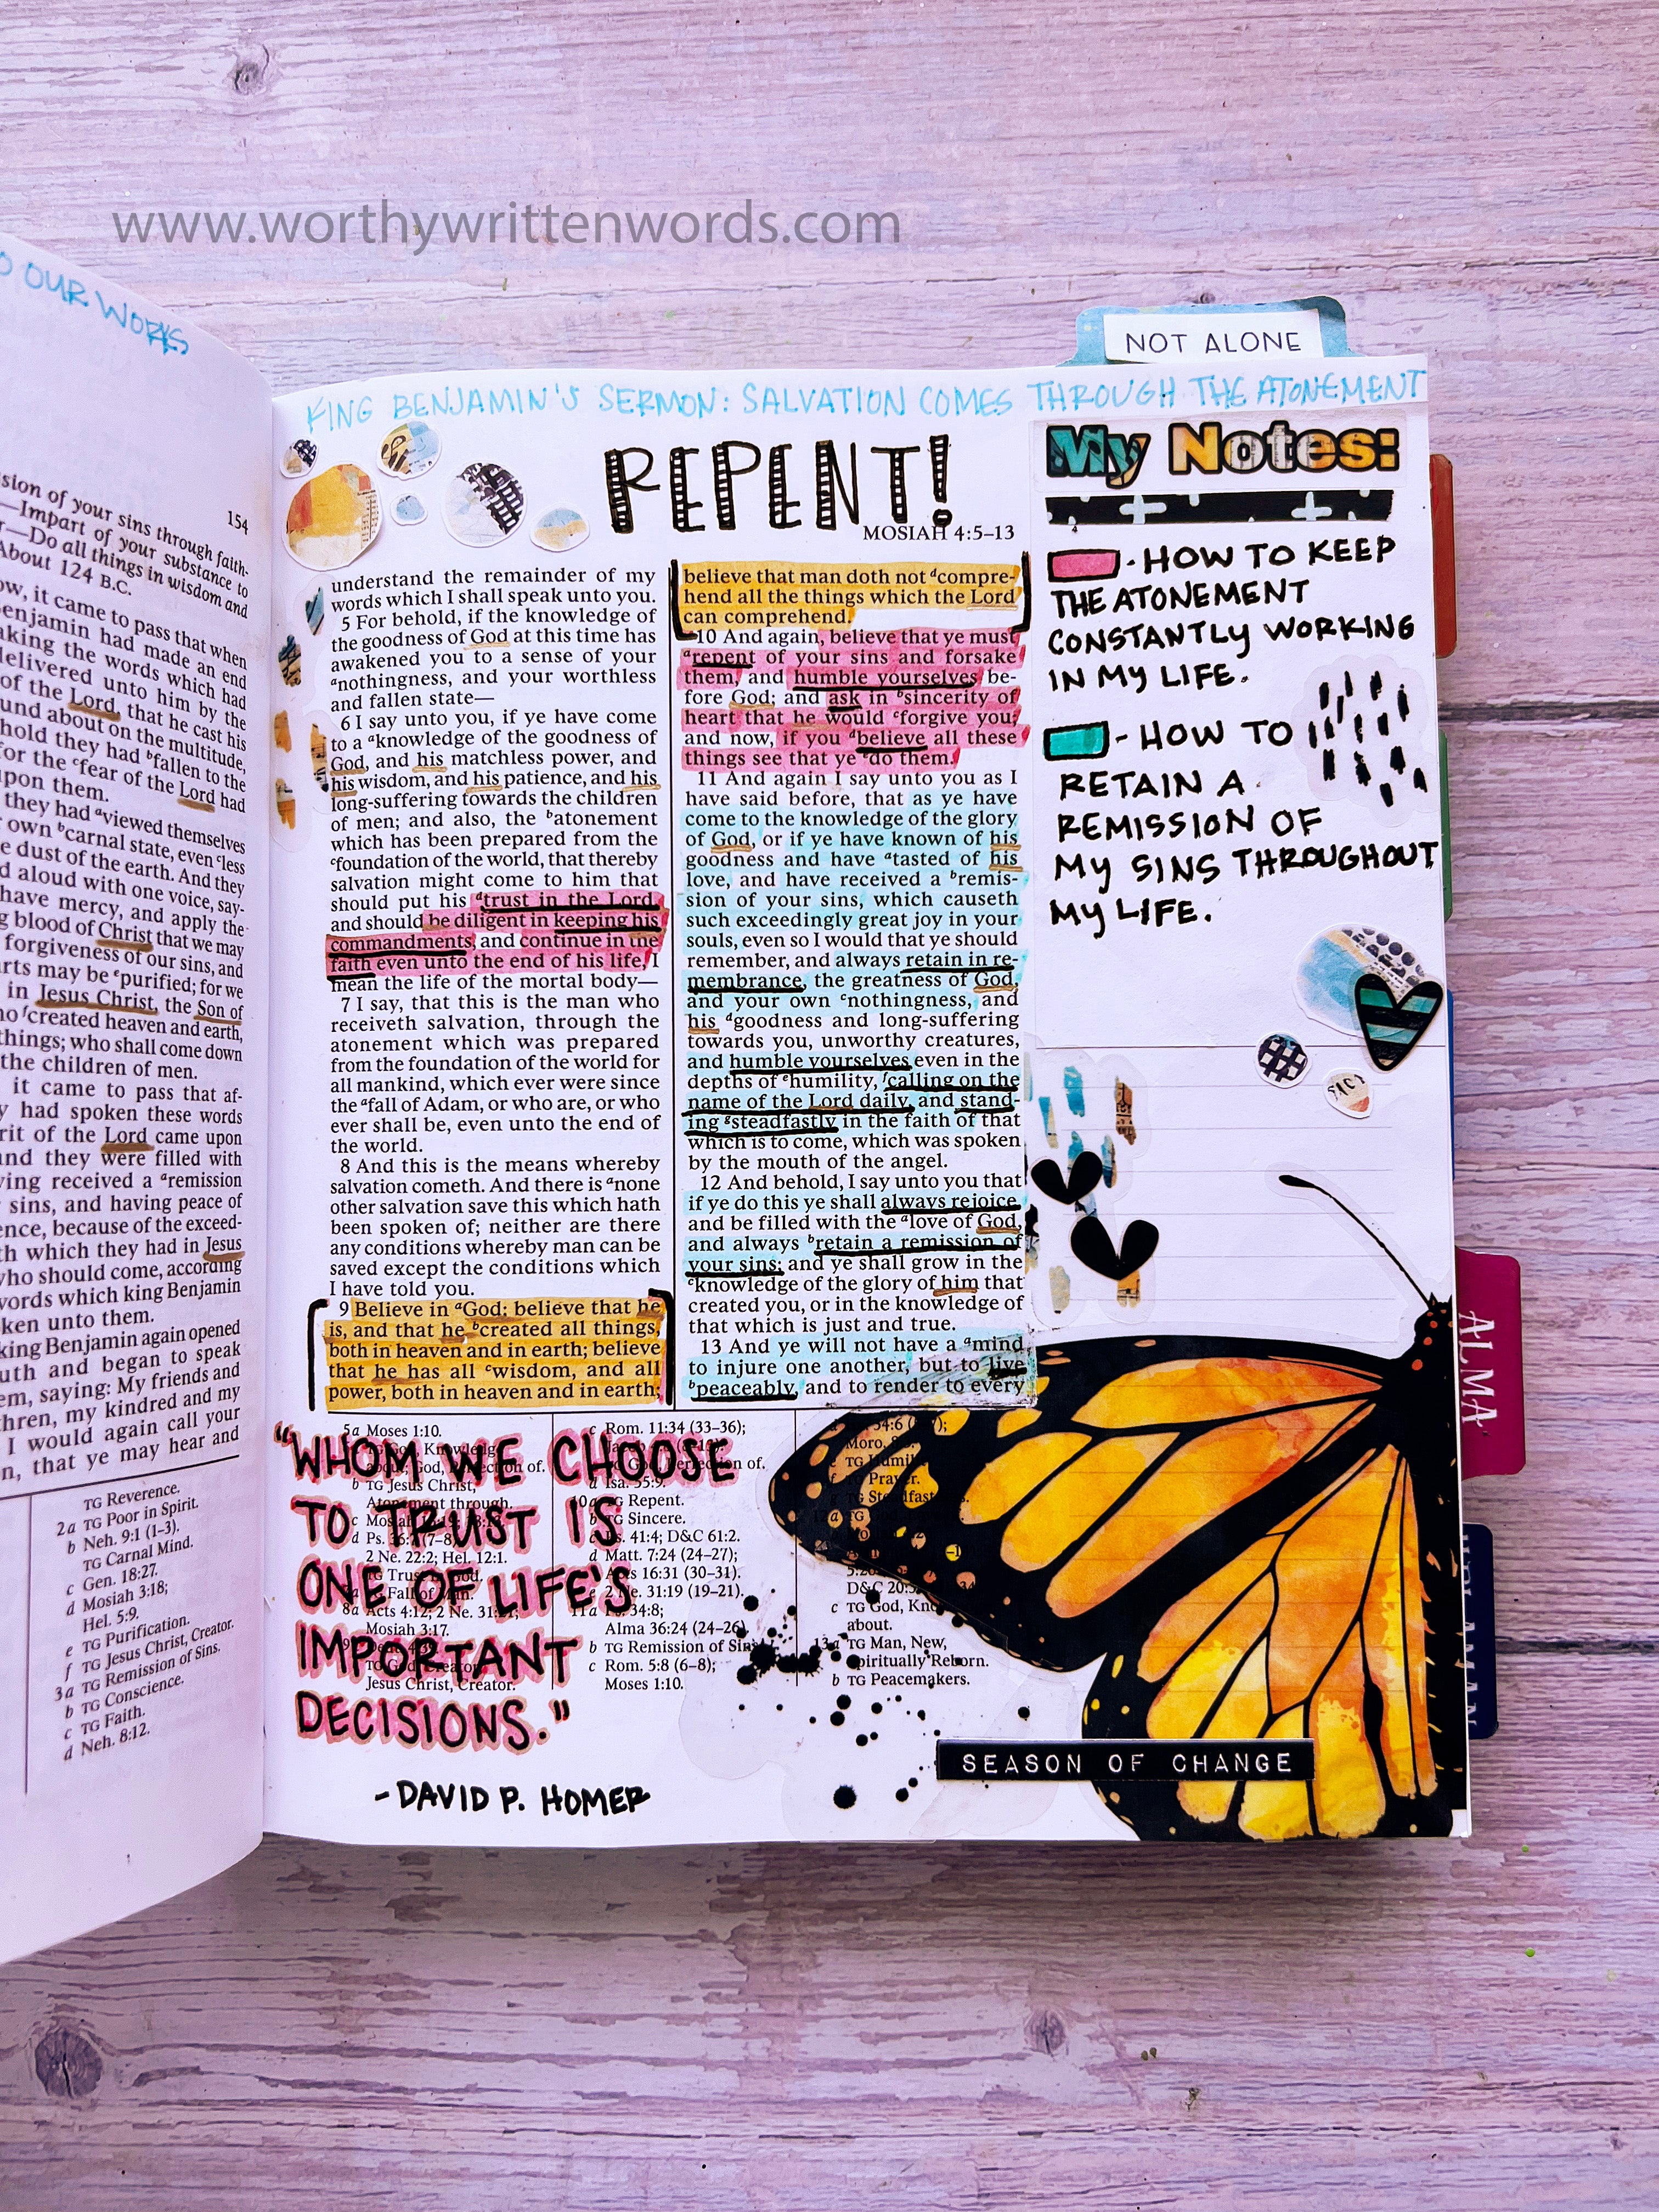 www.worthywrittenwords.com
OUR WORKS
154
sion of your sins through faith-
—Impart of your substance to
—Do all things in wisdom and
About 124 B.C.
ow, it came to pass that when
enjamin had made an end
aking the words which had
delivered unto him by the
of the Lord, that he cast his
und about on the multitude,
hold they had ᵇfallen to the
for the ᶜfear of the Lord had
upon them.
they had ᵃviewed themselves
own ᵇcarnal state, even ᶜless
e dust of the earth. And they
d aloud with one voice, say-
have mercy, and apply the
g blood of Christ that we may
forgiveness of our sins, and
arts may be ᵉpurified; for we
in Jesus Christ, the Son of
ho ᶠcreated heaven and earth,
things; who shall come down
the children of men.
it came to pass that af-
y had spoken these words
rit of the Lord came upon
and they were filled with
ving received a ᵃremission
sins, and having peace of
ence, because of the exceed-
th which they had in Jesus
who should come, according
words which king Benjamin
ken unto them.
king Benjamin again opened
uth and began to speak
em, saying: My friends and
thren, my kindred and my
I would again call your
n, that ye may hear and
TG Reverence.
2a TG Poor in Spirit.
b Neh. 9:1 (1–3).
TG Carnal Mind.
c Gen. 18:27.
d Mosiah 3:18;
Hel. 5:9.
e TG Purification.
f TG Jesus Christ, Creator.
3a TG Remission of Sins.
b TG Conscience.
c TG Faith.
d Neh. 8:12.
NOT ALONE
KING BENJAMIN'S SERMON: SALVATION COMES THROUGH THE ATONEMENT
REPENT!
MOSIAH 4:5–13
understand the remainder of my
words which I shall speak unto you.
5 For behold, if the knowledge of
the goodness of God at this time has
awakened you to a sense of your
ᵃnothingness, and your worthless
and fallen state—
6 I say unto you, if ye have come
to a ᵃknowledge of the goodness of
God, and his matchless power, and
his wisdom, and his patience, and his
long-suffering towards the children
of men; and also, the ᵇatonement
which has been prepared from the
ᶜfoundation of the world, that thereby
salvation might come to him that
should put his ᵈtrust in the Lord,
and should be diligent in keeping his
commandments, and continue in the
faith even unto the end of his life, I
mean the life of the mortal body—
7 I say, that this is the man who
receiveth salvation, through the
atonement which was prepared
from the foundation of the world for
all mankind, which ever were since
the ᵃfall of Adam, or who are, or who
ever shall be, even unto the end of
the world.
8 And this is the means whereby
salvation cometh. And there is ᵃnone
other salvation save this which hath
been spoken of; neither are there
any conditions whereby man can be
saved except the conditions which
I have told you.
9 Believe in ᵃGod; believe that he
is, and that he ᵇcreated all things,
both in heaven and in earth; believe
that he has all ᶜwisdom, and all
power, both in heaven and in earth;
believe that man doth not ᵈcompre-
hend all the things which the Lord
can comprehend.
10 And again, believe that ye must
ᵃrepent of your sins and forsake
them, and humble yourselves be-
fore God; and ask in ᵇsincerity of
heart that he would ᶜforgive you;
and now, if you ᵈbelieve all these
things see that ye ᵉdo them.
11 And again I say unto you as I
have said before, that as ye have
come to the knowledge of the glory
of God, or if ye have known of his
goodness and have ᵃtasted of his
love, and have received a ᵇremis-
sion of your sins, which causeth
such exceedingly great joy in your
souls, even so I would that ye should
remember, and always retain in re-
membrance, the greatness of God,
and your own ᶜnothingness, and
his ᵈgoodness and long-suffering
towards you, unworthy creatures,
and humble yourselves even in the
depths of ᵉhumility, ᶠcalling on the
name of the Lord daily, and stand-
ing ᵍsteadfastly in the faith of that
which is to come, which was spoken
by the mouth of the angel.
12 And behold, I say unto you that
if ye do this ye shall always rejoice,
and be filled with the ᵃlove of God,
and always ᵇretain a remission of
your sins; and ye shall grow in the
ᶜknowledge of the glory of him that
created you, or in the knowledge of
that which is just and true.
13 And ye will not have a ᵃmind
to injure one another, but to live
ᵇpeaceably, and to render to every
My Notes:
- HOW TO KEEP
THE ATONEMENT
CONSTANTLY WORKING
IN MY LIFE.
- HOW TO
RETAIN A
REMISSION OF
MY SINS THROUGHOUT
MY LIFE.
ALMA
"WHOM WE CHOOSE
TO TRUST IS
ONE OF LIFE'S
IMPORTANT
DECISIONS."
- DAVID P. HOMER
5a Moses 1.10.
b TG Jesus Christ,
Atonement through.
2 Ne. 22:2; Hel. 12:1.
8a Acts 4:12; 2 Ne. 31
Mosiah 3:17.
Jesus Christ, Creator.
c Rom. 11:34 (33–36);
d Isa. 55:9.
10a TG Repent.
b TG Sincere.
41:4; D&C 61:2.
d Matt. 7:24 (24–27);
16:31 (30–31).
31:19 (19–21).
34:8;
Alma 36:24 (24–26)
b TG Remission of Sins
c Rom. 5:8 (6–8);
Moses 1:10.
TG Prayer.
D&C 20:
c TG God,
about.
TG Man, New,
Spiritually Reborn.
b TG Peacemakers.
SEASON OF CHANGE